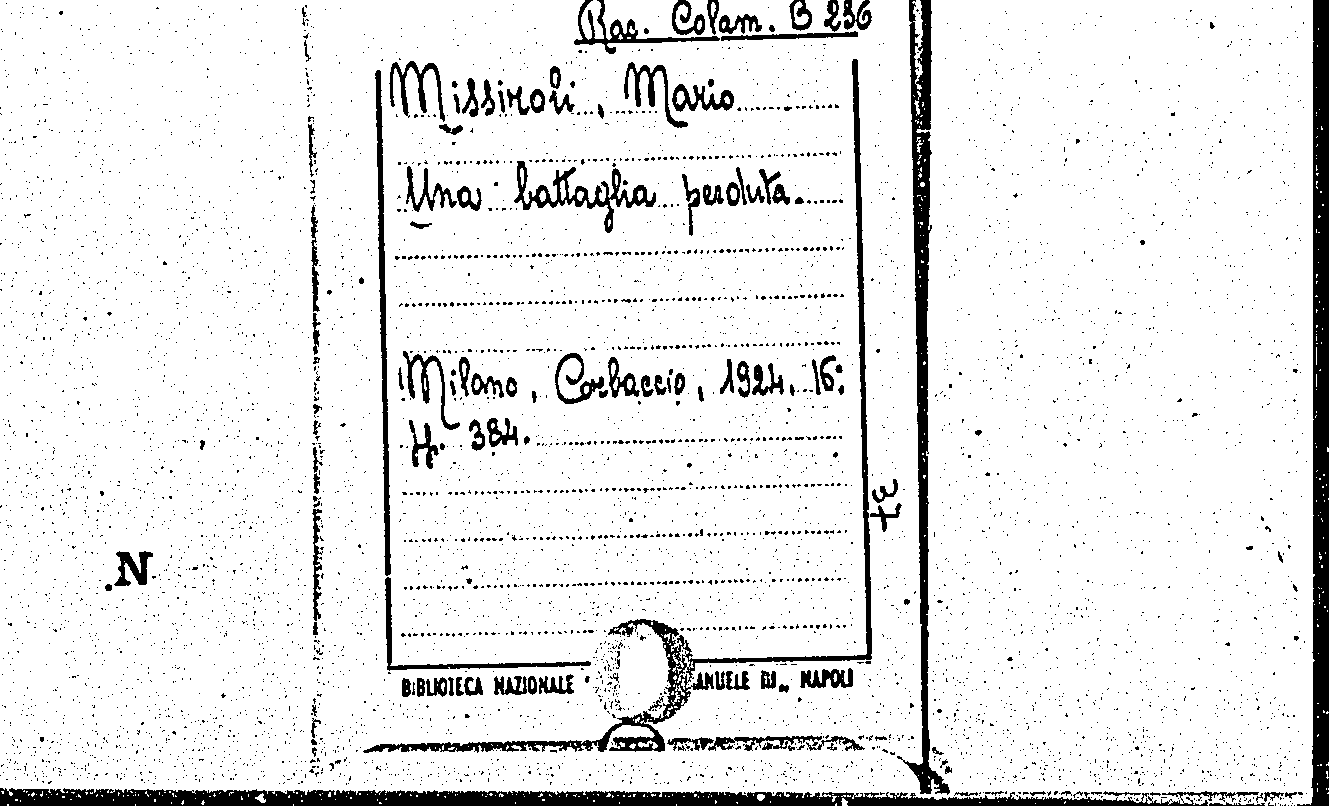 Rac. Colam. B 236
Missiroli, Mario
Una battaglia perduta.
Milano, Corbaccio, 1924, 16:
pp. 384.
N
BIBLIOTECA NAZIONALE " ANUELE III„ NAPOLI